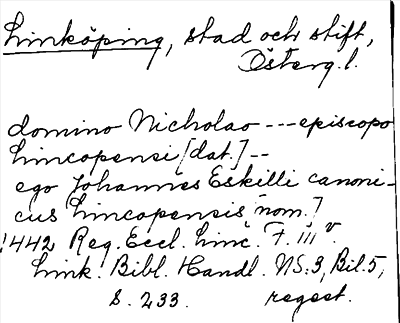 Linköping, stad och stift,
Österg.l.
domino Nicholao --- episcopo
Lincopensi [dat.] --
ego Johannes Eskilli canoni-
cus Lincopensis [nom.]
1442 Reg. Eccl. Linc. F. III v.
Link. Bibl. Handl. NS:3, Bil.5,
S. 233. regest.